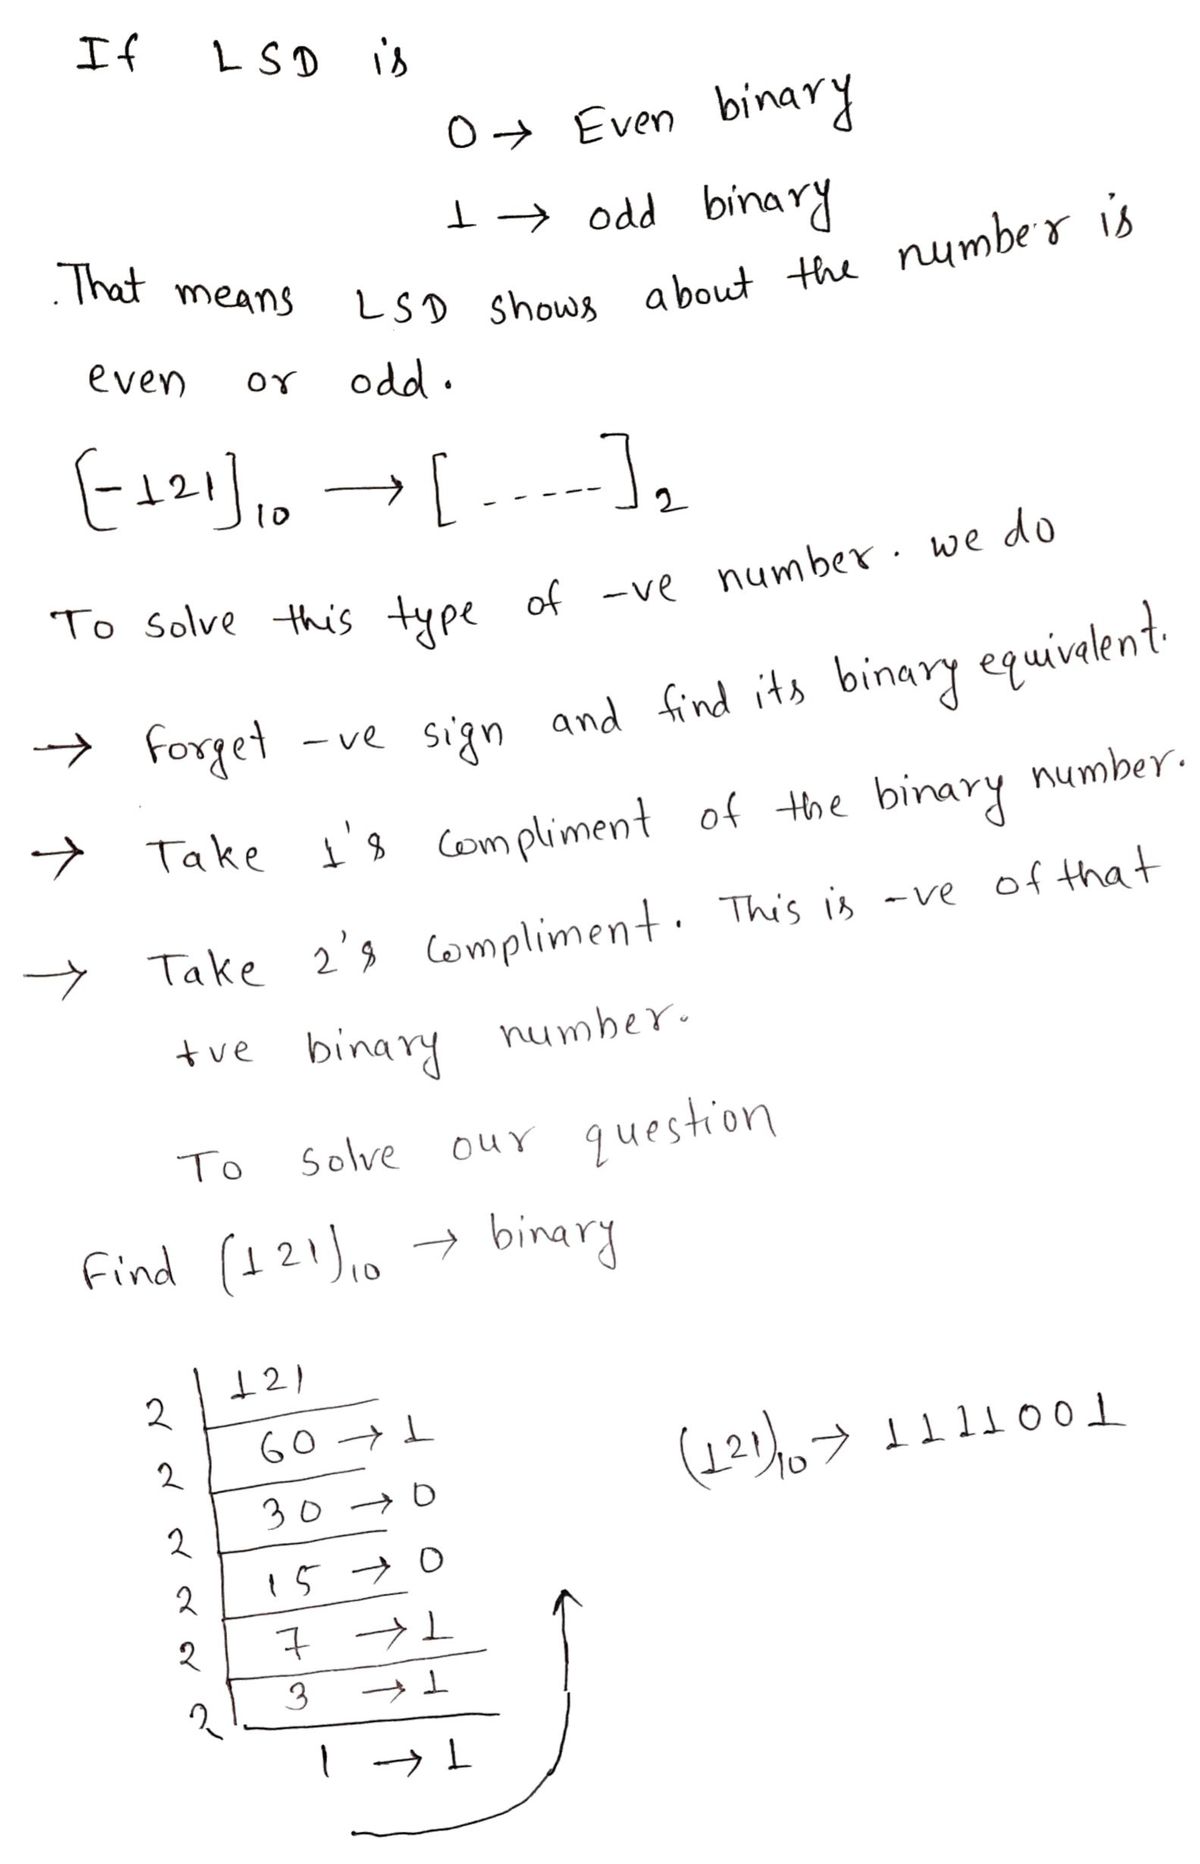 If LSD is
0 → Even binary
1 → odd binary
. That means LSD shows about the number is
even or odd.
[-121]10 → [ ------ ]2
To solve this type of -ve number. we do
→ Forget -ve sign and find its binary equivalent.
→ Take 1's compliment of the binary number.
→ Take 2's compliment. This is -ve of that
+ve binary number.
To solve our question
Find (121)10 → binary
2 | 121
2 | 60 → 1
2 | 30 → 0
2 | 15 → 0
2 | 7 → 1
2 | 3 → 1
1 → 1
(121)10 → 1111001